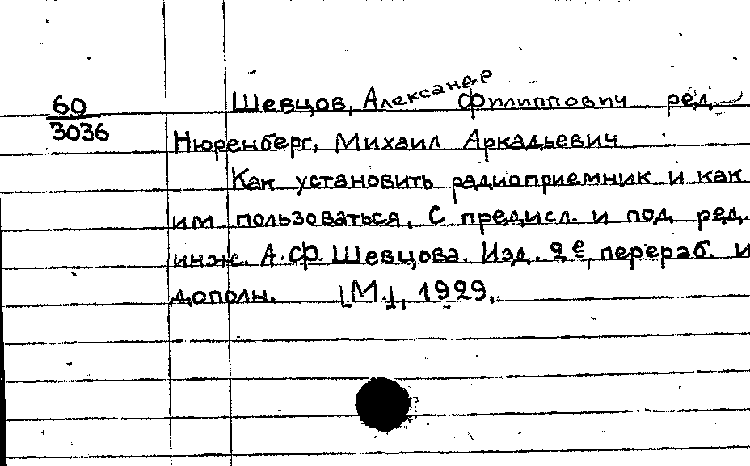 60 Шевцов, Александр Филиппович ред.
3036
Нюренберг, Михаил Аркадьевич
Как установить радиоприемник и как
им пользоваться. С предисл. и под ред.
инж. А.Ф. Шевцова. Изд. 2е, перераб. и
дополн. [М.], 1929.